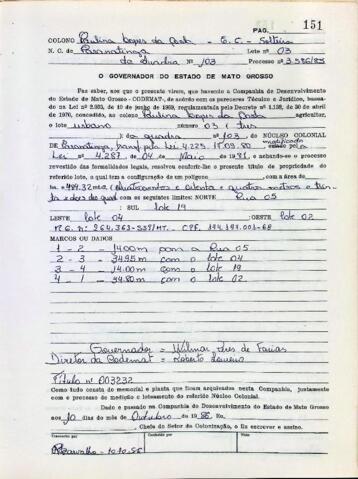 PAG. 151
COLONO Paulina Lopes da Costa - E. C. - Solteira
N. C. de Paranatinga Lote nº 03
da Quadra Nº 103 Processo nº 3.586/83
O GOVERNADOR DO ESTADO DE MATO GROSSO
Faz saber, aos que o presente virem, que havendo a Companhia de Desenvolvimento
do Estado de Mato Grosso - CODEMAT-, de acordo com os pareceres Técnico e Jurídico, basea-
da na Lei nº 2.925, de 10 de junho de 1969, regulamentada pelo Decreto nº 1.138, de 30 de abril
de 1970, concedido ao colono Paulina Lopes da Costa agricultor,
o lote urbano nº 03 ( três
) da quadra nº 103, do NÚCLEO COLONIAL
de Paranatinga, transf. pela Lei 4.225 15.09.80 modificada
Lei nº 4.287, de 04 de Maio, 1981, e achando-se o processo
revestido das formalidades legais, resolveu conferir-lhe o presente título de propriedade do
referido lote, o qual tem a configuração de um polígono com a área de
484,32 mts2 (quatrocentos e oitenta e quatro metros e trin
ta e dois do qual com os seguintes limites: NORTE Rua 05
SUL lote 19
LESTE lote 04 OESTE lote 02
MARCOS OU DADOS
1 - 2 - 14.00m com a Rua 05
2 - 3 - 34.95m com o lote 04
3 - 4 - 14.00m com o lote 19
4 - 1 - 34.80m com o lote 02
Governador = Wilmar Peres de Farias
Diretor da Codemat = Roberto Loureiro
Título nº 003232
Como tudo consta do memorial e planta que ficam arquivados nesta Companhia, juntamente
com o processo de medição e loteamento do referido Núcleo Colonial.
Dado e passado na Companhia de Desenvolvimento do Estado de Mato Grosso
aos 10 dias do mês de Outubro de 1986. Eu,
, Chefe do Setor de Colonização, o fiz escrever e assino.
Conferido por Visto